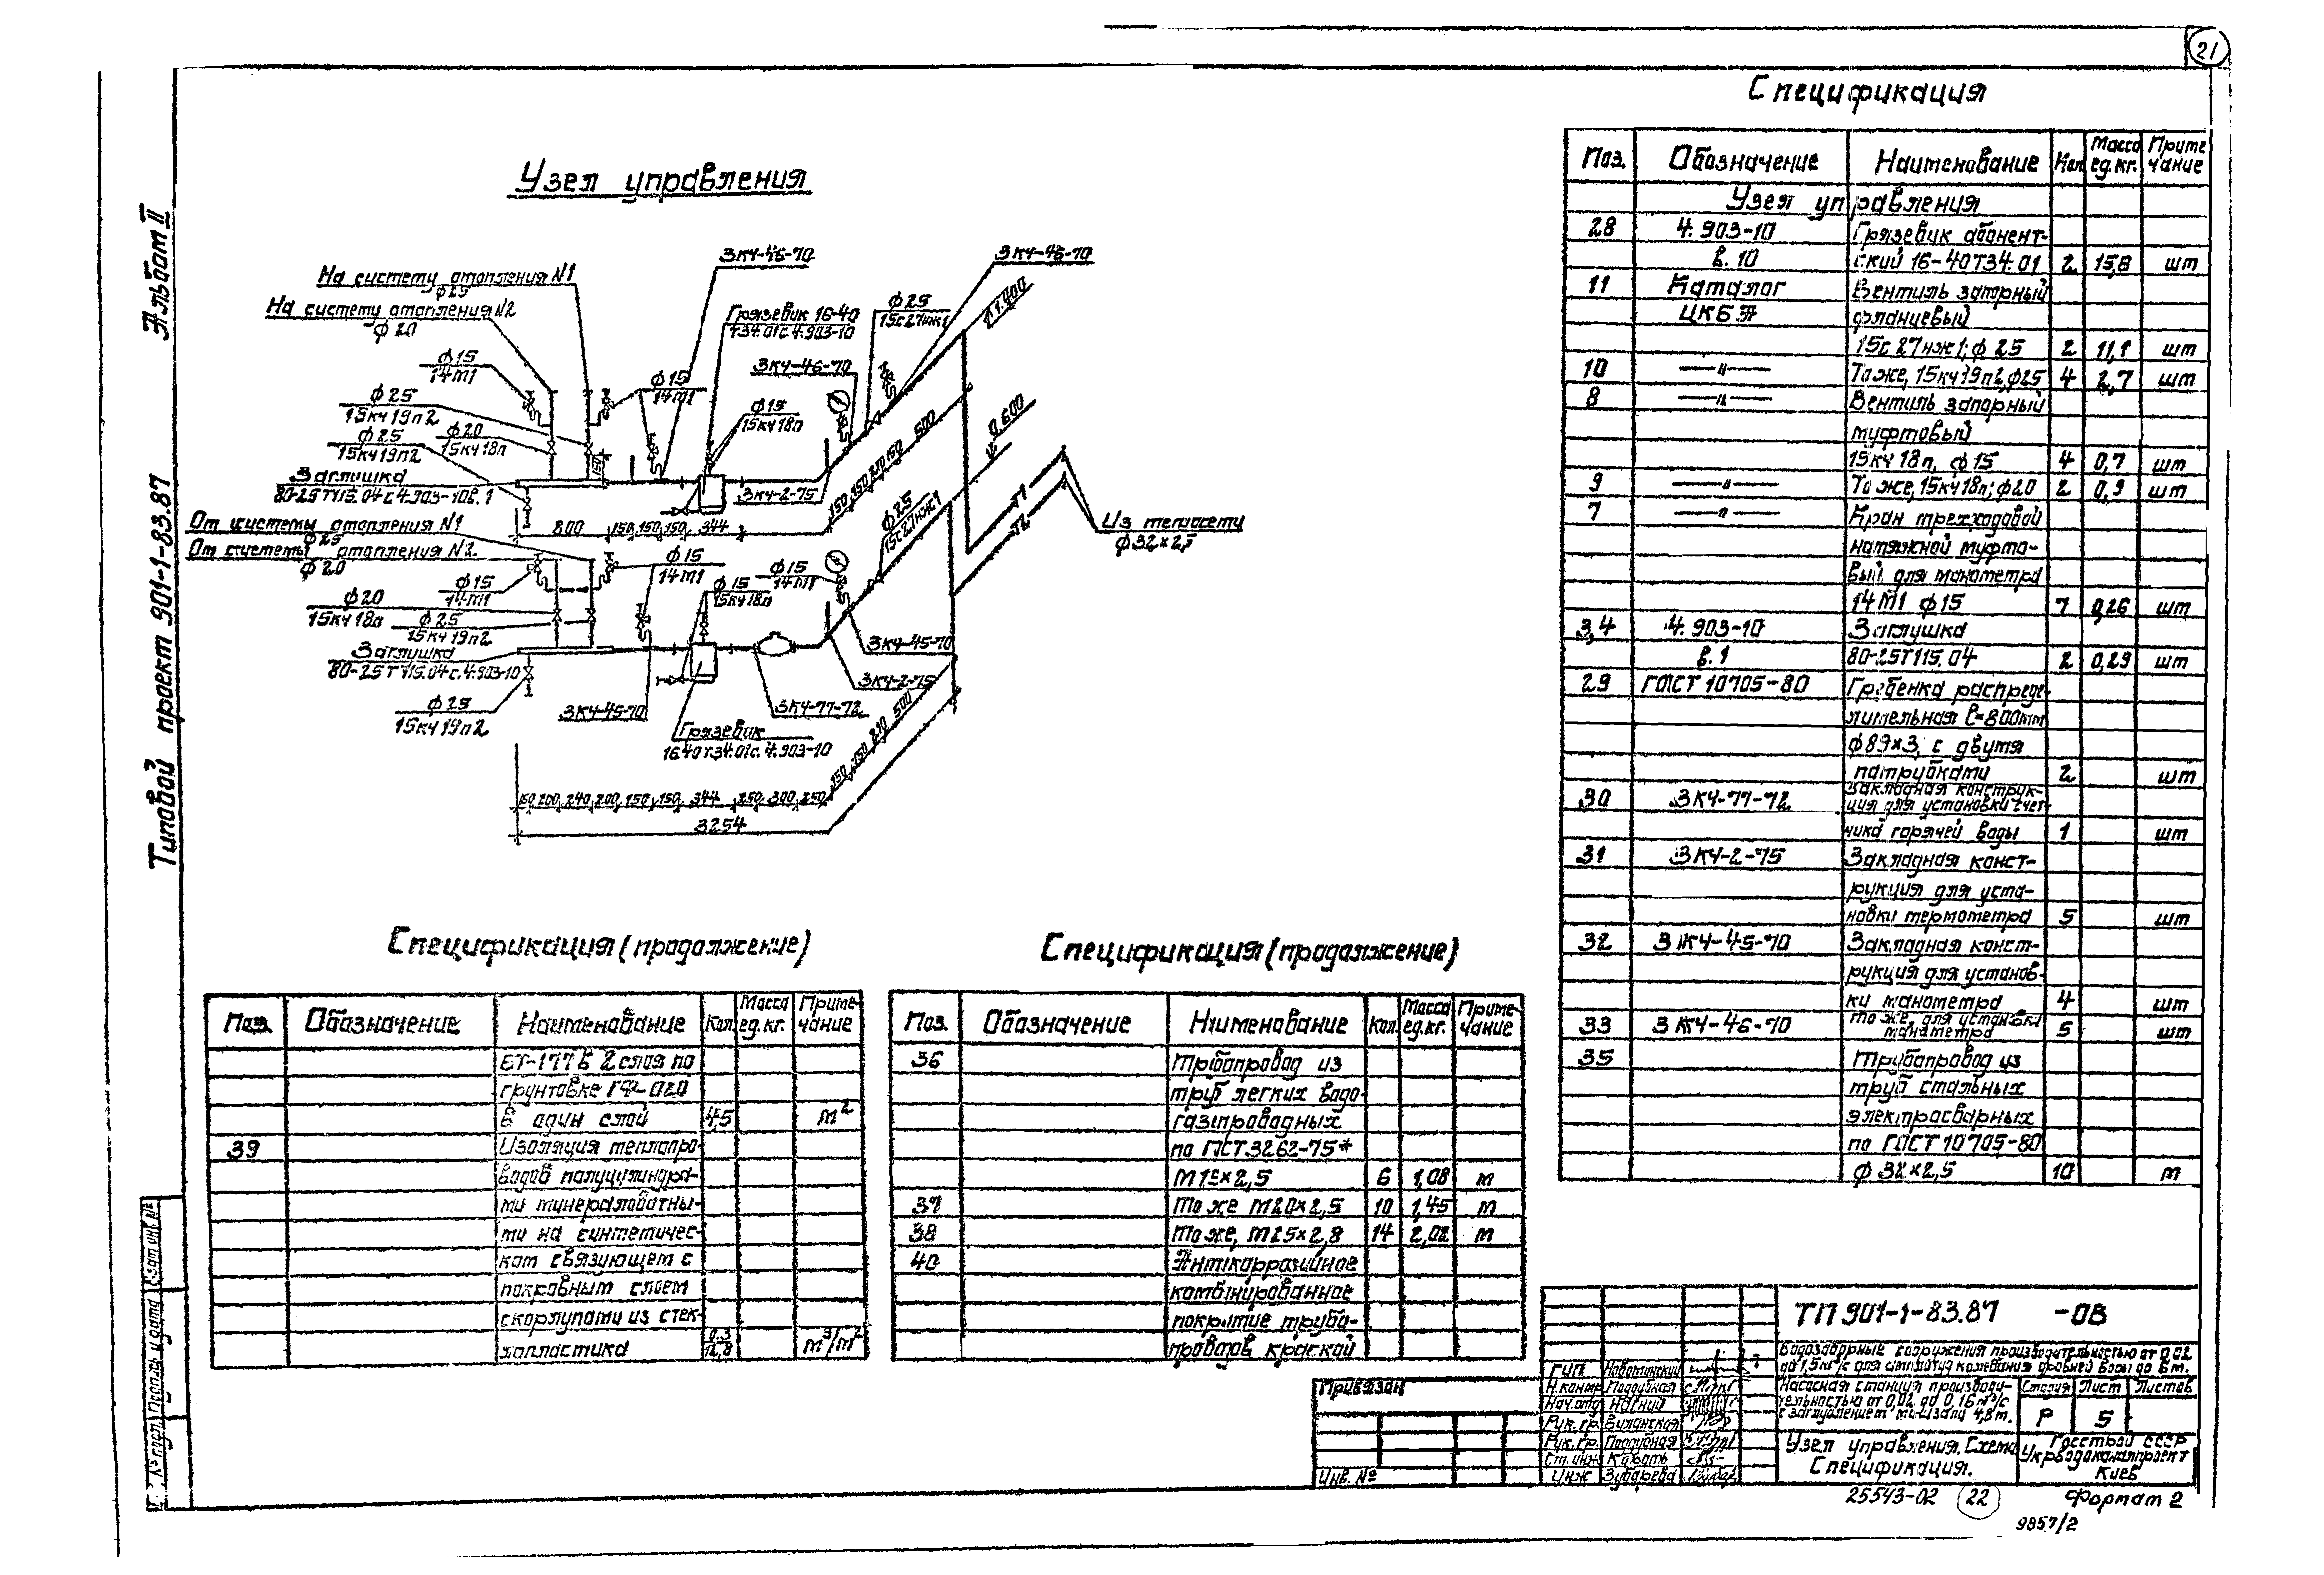 21
Альбом II
Типовой проект 901-1-83.87
Узел управления
На систему отопления N1
ф25
На систему отопления N2
ф20
ф15
14М1
ф25
15кч19п2
ф25
15кч19п2
ф20
15кч18п
Заглушка
80-25Т115.04с.4.903-10в.1
От системы отопления N1
ф25
От системы отопления N2
ф20
ф15
14М1
ф20
15кч18п
ф25
15кч19п2
Заглушка
80-25Т115.04с.4.903-10
ф25
15кч19п2
ЗКЧ-46-70
Грязевик 16-40
Т34.01с.4.903-10
ЗКЧ-46-70
ф25
15с27нж1
ЗКЧ-46-70
ф15
14М1
ф15
15кч18п
ЗКЧ-2-75
150
800 150 150 150 344
150 150 210 150 500
0.600
ф25
15с27нж1
Т1
Т2
Из теплосети
ф32×2,5
ф15
14М1
ф15
15кч18п
ф15
14М1
ЗКЧ-45-70
ЗКЧ-2-75
ЗКЧ-77-72
ЗКЧ-45-70
Грязевик
16.40Т34.01с.4.903-10
200 240 200 150 150 344 250 300 250
150 150 210 500
3254
Спецификация
Поз. Обозначение Наименование Кол Масса ед.кг. Приме чание
Узел управления
28 4.903-10 Грязевик абонент-
в.10 ский 16-40Т34.01 2 15,8 шт
11 Каталог Вентиль запорный
ЦКБА фланцевый
15с27нж1; ф25 2 11,1 шт
10 —"— То же, 15кч19п2, ф25 4 2,7 шт
8 —"— Вентиль запорный
муфтовый
15кч18п, ф15 4 0,7 шт
9 —"— То же, 15кч18п; ф20 2 0,9 шт
7 —"— Кран трехходовой
натяжной муфто-
вый для манометра
14М1 ф15 7 0,26 шт
3,4 4.903-10 Заглушка
в.1 80-25Т115.04 2 0,29 шт
29 ГОСТ 10705-80 Гребенка распреде-
лительная ℓ=800мм
ф89×3, с двумя
патрубками 2 шт
30 ЗКЧ-77-72 Закладная конструк-
ция для установки счет-
чика горячей воды 1 шт
31 ЗКЧ-2-75 Закладная конст-
рукция для уста-
новки термометра 5 шт
32 ЗКЧ-45-70 Закладная конст-
рукция для установ-
ки манометра 4 шт
33 ЗКЧ-46-70 То же, для установки
манометра 5 шт
35 Трубопровод из
труб стальных
электросварных
по ГОСТ 10705-80
ф32×2,5 10 м
Спецификация (продолжение)
Поз. Обозначение Наименование Кол. Масса ед.кг. Приме-чание
БТ-177 в 2 слоя по
грунтовке ГФ-020
в один слой 4,5 м²
39 Изоляция теплопро-
водов полуцилиндра-
ми минераловатны-
ми на синтетичес-
ком связующем с
покровным слоем
скорлупами из стек-
лопластика 0,3/12,8 м³/м²
Спецификация (продолжение)
Поз. Обозначение Наименование Кол. Масса ед.кг. Приме-чание
36 Трубопровод из
труб легких водо-
газпроводных
по ГОСТ 3262-75*
М15×2,5 6 1,08 м
37 То же М20×2,5 10 1,45 м
38 То же, М25×2,8 14 2,02 м
40 Антикоррозийное
комбинированное
покрытие трубо-
проводов краской
Привязан
Инв. №
ТП 901-1-83.87 -ОВ
Водозаборные сооружения производительностью от 0,02
до 1,5 м³/с для амплитуд колебания уровней воды до 6 м.
Насосная станция производи-
тельностью от 0,02 до 0,16 м³/с
с заглублением машзала 4,8 м.
Стадия Лист Листов
Р 5
Узел управления. Схема
Спецификация.
Госстрой СССР
Укрводоканалпроект
Киев
ГИП Новотинский
Н.контр Поддубная
Нач.отд Нагний
Рук.гр. Виланская
Рук.гр. Поддубная
Ст.инж Король
Инж Зубарева
25543-02 22 Формат 2
9857/2
Подпись и дата
Взам инв. №